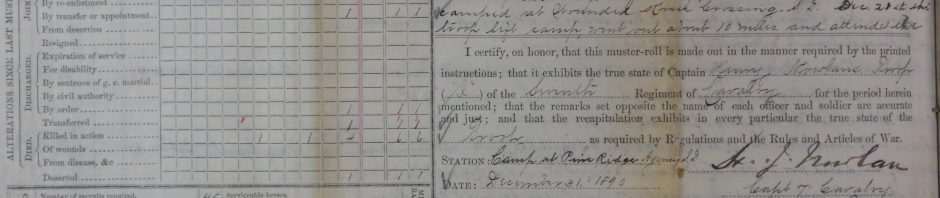 ALTERATIONS SINCE LAST MUST
JOIN
By re-enlistment
By transfer or appointment 1 1 1
From desertion
Resigned
DISCHARGED.
Expiration of service
For disability
By sentence of g. c. martial
By civil authority
By order 1 1
Transferred 1 1 1
DIED.
Killed in action 1 1 4 6 6
Of wounds
From disease, &c
Deserted 1 1 1
Number of recruits required. Serviceable horses.
camped at Wounded Knee Crossing, S.D. Dec. 28th the
troop left camp went out about 10 miles and attended the
I certify, on honor, that this muster-roll is made out in the manner required by the printed
instructions; that it exhibits the true state of Captain Henry J. Nowlans Troop
of the Seventh Regiment of Cavalry for the period herein
mentioned; that the remarks set opposite the name of each officer and soldier are accurate
and just; and that the recapitulation exhibits in every particular the true state of the
Troop as required by Regulations and the Rules and Articles of War.
STATION: Camp at Pine Ridge Agency S.D.
H. J. Nowlan
DATE: December 31st 1890
Capt 7 Cavalry